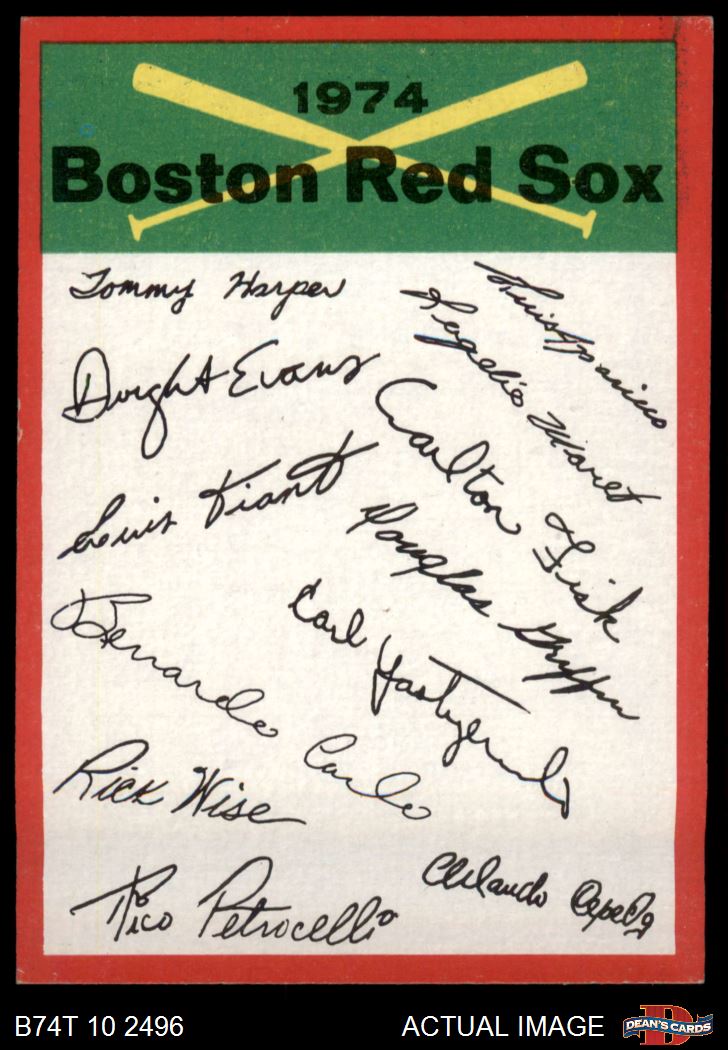 1974
Boston Red Sox
Tommy Harper
Luis Aparicio
Rogelio Moret
Dwight Evans
Carlton Fisk
Luis Tiant
Douglas Griffin
Bernardo Carbo
Carl Yastrzemski
Rick Wise
Orlando Cepeda
Rico Petrocelli
B74T 10 2496
ACTUAL IMAGE
D
DEAN'S CARDS